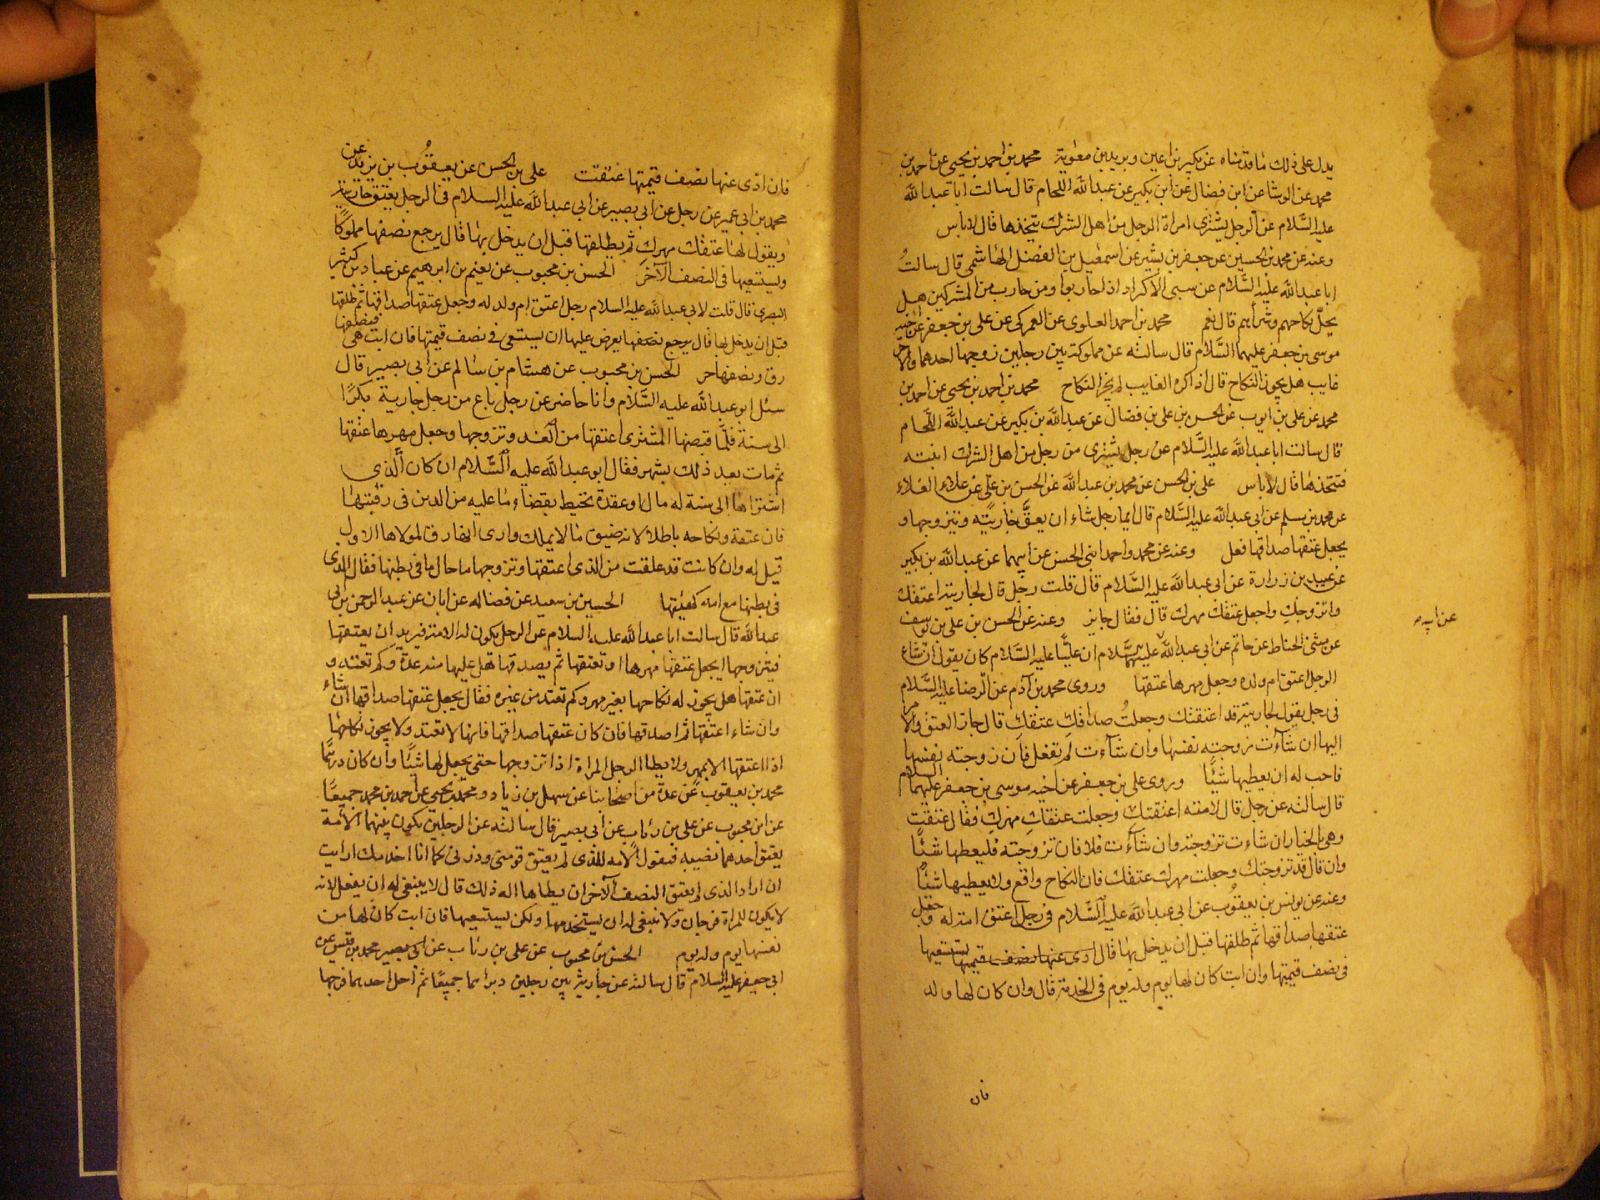 يدل على ذلك ما قدمناه عن بكير بن اعين وبريد بن معوية محمد بن احمد بن يحيى عن احمد بن
محمد عن الوشا عن ابن فضال عن ابن بكير عن عبد الله اللحام قال سالت ابا عبد الله
عليه السلام عن الرجل يشترى امراة الرجل من اهل الشرك يتخذها قال لاباس
وعنه عن محمد بن الحسين عن جعفر بن بشير عن اسمعيل بن الفضل الهاشمى قال سالت
ابا عبد الله عليه السلام عن سبى الاكراد اذا حاربوا ومن حارب من المشركين هل
يحل نكاحهم وشراهم قال نعم محمد بن احمد العلوى عن العمركى عن على بن جعفر عن اخيه
موسى بن جعفر عليهما السلام قال سالته عن مملوكة بين رجلين زوجها احدهما والاخر
غايب هل يجوز النكاح قال اذا كره الغايب لم يجز النكاح محمد بن احمد بن يحيى عن احمد بن
محمد عن على بن ايوب عن الحسن بن على بن فضال عن عبد الله بن بكير عن عبد الله اللحام
قال سالت ابا عبد الله عليه السلام عن رجل يشترى من رجل من اهل الشرك ابنته
فيتخذها قال لاباس على بن الحسن عن محمد بن عبد الله عن الحسن بن على عن علاء العلاء
عن محمد بن مسلم عن ابى عبد الله عليه السلام قال ايما رجل شاء ان يعتق جاريته ويتزوجها و
يجعل عتقها صداقها فعل وعنه عن محمد واحمد ابنى الحسن عن ابيهما عن عبد الله بن بكير
عن عبيد بن زرارة عن ابى عبد الله عليه السلام قال قلت رجل قال لجاريته اعتقك
واتزوجك واجعل عتقك مهرك قال فقال جايز وعنه عن الحسن بن على بن يوسف
عن مثنى الحناط عن حاتم عن ابى عبد الله عليه السلام ان عليا عليه السلام كان يقول ان شاء
الرجل اعتق ام ولده وجعل مهرها عتقها وروى محمد بن آدم عن الرضا عليه السلام
فى رجل يقول لجاريته قد اعتقتك وجعلت صداقك عتقك قال جاز العتق والامر
اليها ان شاءت زوجته نفسها وان شاءت لم تفعل فان زوجته نفسها
فاحب له ان يعطيها شيئا وروى على بن جعفر عن اخيه موسى بن جعفر عليهما السلام
قال سالته عن رجل قال لامته اعتقتك وجعلت عتقك مهرك فقال عتقت
وهى بالخيار ان شاءت تزوجته وان شاءت فلا فان تزوجته فليعطها شيئا
وان قال قد تزوجتك وجعلت مهرك عتقك فان النكاح واقع ولا يعطيها شيئا
وعنه عن يونس بن يعقوب عن ابى عبد الله عليه السلام فى رجل اعتق امة له وجعل
عتقها صداقها ثم طلقها قبل ان يدخل بها قال يستسعيها
فى نصف قيمتها وان ابت كان لها يوم وله يوم فى الخدمة قال وان كان لها ولد
فان
عن ابيه
فان ادى عنها نصف قيمتها عتقت على بن الحسن عن يعقوب بن يزيد عن
محمد بن ابى عمير عن رجل عن ابى بصير عن ابى عبد الله عليه السلام فى الرجل يعتق جاريته
ويقول لها عتقك مهرك ثم يطلقها قبل ان يدخل بها قال يرجع نصفها مملوكا
ويستسعيها فى النصف الآخر الحسن بن محبوب عن نعيم بن ابرهيم عن عباد بن كثير
البصرى قال قلت لابى عبد الله عليه السلام رجل اعتق ام ولد له وجعل عتقها صداقها ثم طلقها
قبل ان يدخل بها قال يرجع نصفها يعرض عليها ان تستسعى فى نصف قيمتها فان ابت هى فنصفها
رق ونصفها حر الحسن بن محبوب عن هشام بن سالم عن ابى بصير قال
سئل ابو عبد الله عليه السلام وانا حاضر عن رجل باع من رجل جارية بكرا
الى سنة فلما قبضها المشترى اعتقها من الغد وتزوجها وجعل مهرها عتقها
ثم مات بعد ذلك بشهر فقال ابو عبد الله عليه السلام ان كان الذى
اشتراها الى سنة له مال او عقدة تحيط بقضاء ما عليه من الدين فى رقبتها
فان عتقه ونكاحه باطلا لانه عتق ما لا يملك وارى انها رق لمولاها الاول
قيل له وان كانت قد علقت من الذى اعتقها وتزوجها ما حال ما فى بطنها فقال الذى
فى بطنها مع امه كهيئتها الحسين بن سعيد عن فضاله عن ابان عن عبد الرحمن بن ابى
عبد الله قال سالت ابا عبد الله عليه السلام عن الرجل يكون له الامة فيريد ان يعتقها
فيتزوجها ايجعل عتقها مهرها او يعتقها ثم يصدقها هل عليها منه عدة وكم تعتد و
ان عتقها هل يجوز له نكاحها بغير مهر وكم تعتد من غيره فقال يجعل عتقها صداقها ان شاء
وان شاء اعتقها ثم اصدقها فان كان عتقها صداقها فانها لا تعتد ولا يجوز نكاحها
اذا اعتقها الا بمهر ولا يطا الرجل المراة اذا تزوجها حتى يجعل لها شيئا وان كان درهما
محمد بن يعقوب عن عدة من اصحابنا عن سهل بن زياد ومحمد بن يحيى عن احمد بن محمد جميعا
عن ابن محبوب عن على بن رئاب عن ابى بصير قال سالته عن الرجلين يكون بينهما الامة
يعتق احدهما نصيبه فتقول الامه للذى لم يعتق قومنى وذرنى كما انا اخدمك ارايت
ان اراد الذى لم يعتق النصف الآخر ان يطاها اله ذلك قال لا ينبغى له ان يفعل لانه
لا يكون للمراة فرجان ولا ينبغى له ان يستخدمها ولكن يستسعيها فان ابت كان لها من
نفسها يوم وله يوم الحسن بن محبوب عن على بن رئاب عن ابى بصير محمد بن قيس عن
ابى جعفر عليه السلام قال سالته عن جارية بين رجلين دبراها جميعا ثم احل احدهما فرجها